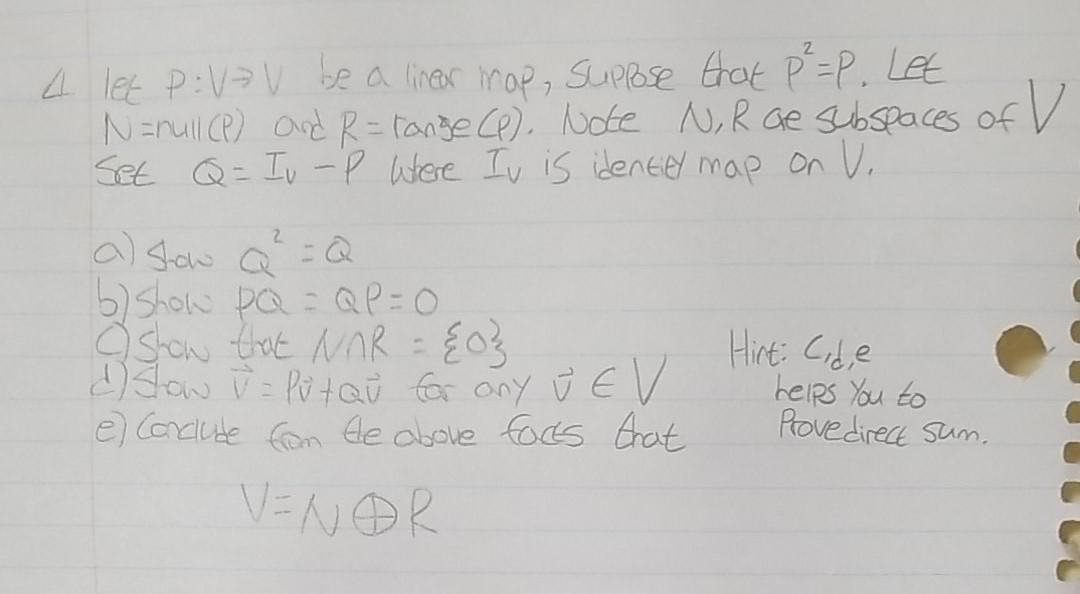 4 let P:V→V be a linear map, suppose that P²=P. Let
N=null(P) and R=range(P). Note N,R are subspaces of V
Set Q = Iv - P where Iv is identity map on V.
a) Show Q² = Q
b) Show PQ = QP = 0
c) Show that N∩R = {0}
d) Show v⃗ = Pv⃗ + Qv⃗ for any v⃗ ∈ V
e) Conclude from the above facts that
V = N ⊕ R
Hint: C,d,e
helps You to
Prove direct sum.